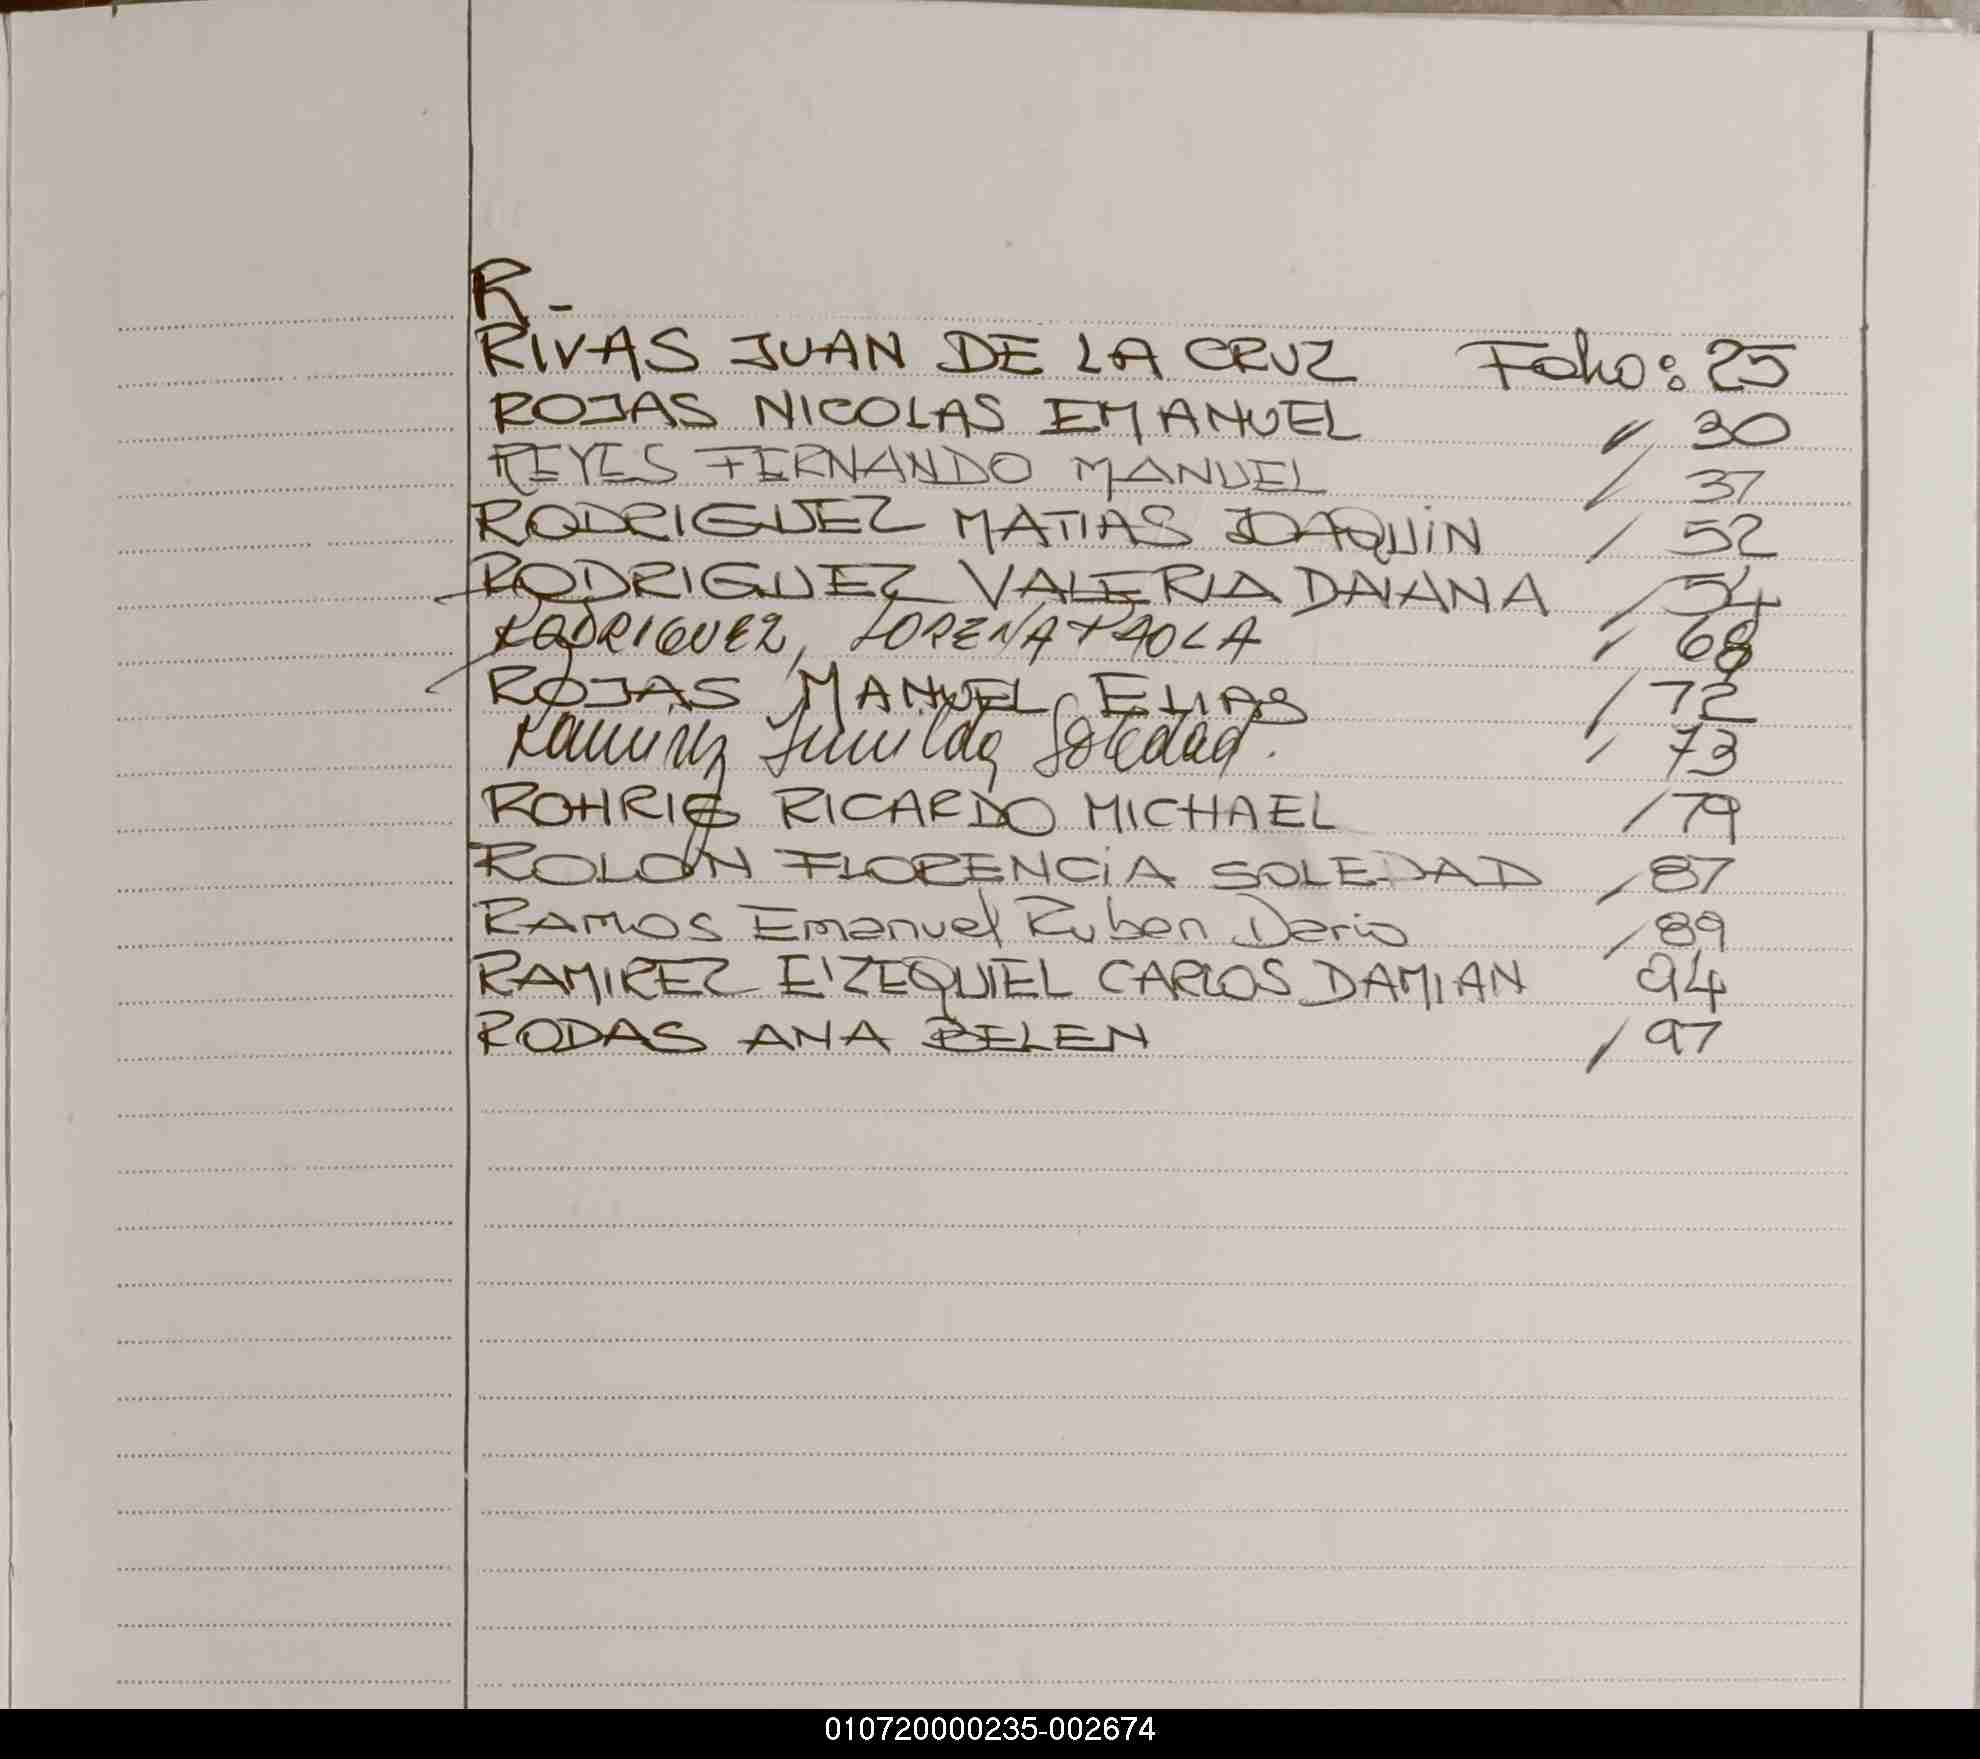 R-
RIVAS JUAN DE LA CRUZ Folio: 25
ROJAS NICOLAS EMANUEL " 30
REYES FERNANDO MANUEL / 37
RODRIGUEZ MATIAS JOAQUIN / 52
RODRIGUEZ VALERIA DAIANA / 54
RODRIGUEZ, LORENA PAOLA / 68
ROJAS MANUEL ELIAS / 72
Ramirez Soledad. / 73
ROHRIG RICARDO MICHAEL / 79
ROLON FLORENCIA SOLEDAD / 87
RAMOS Emanuel Ruben Dario / 89
RAMIREZ E'ZEQUIEL CARLOS DAMIAN 94
RODAS ANA BELEN / 97
010720000235-002674